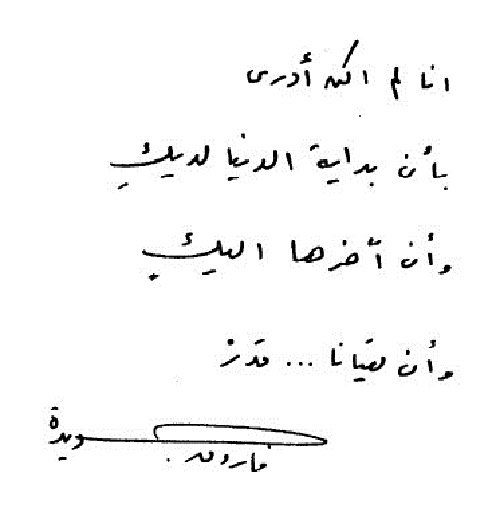 انا لم اكن أدرى
بأن بداية الدنيا لديكِ
وأن آخرها اليكِ
وأن لقيانا ... قدر
فاروق جويدة